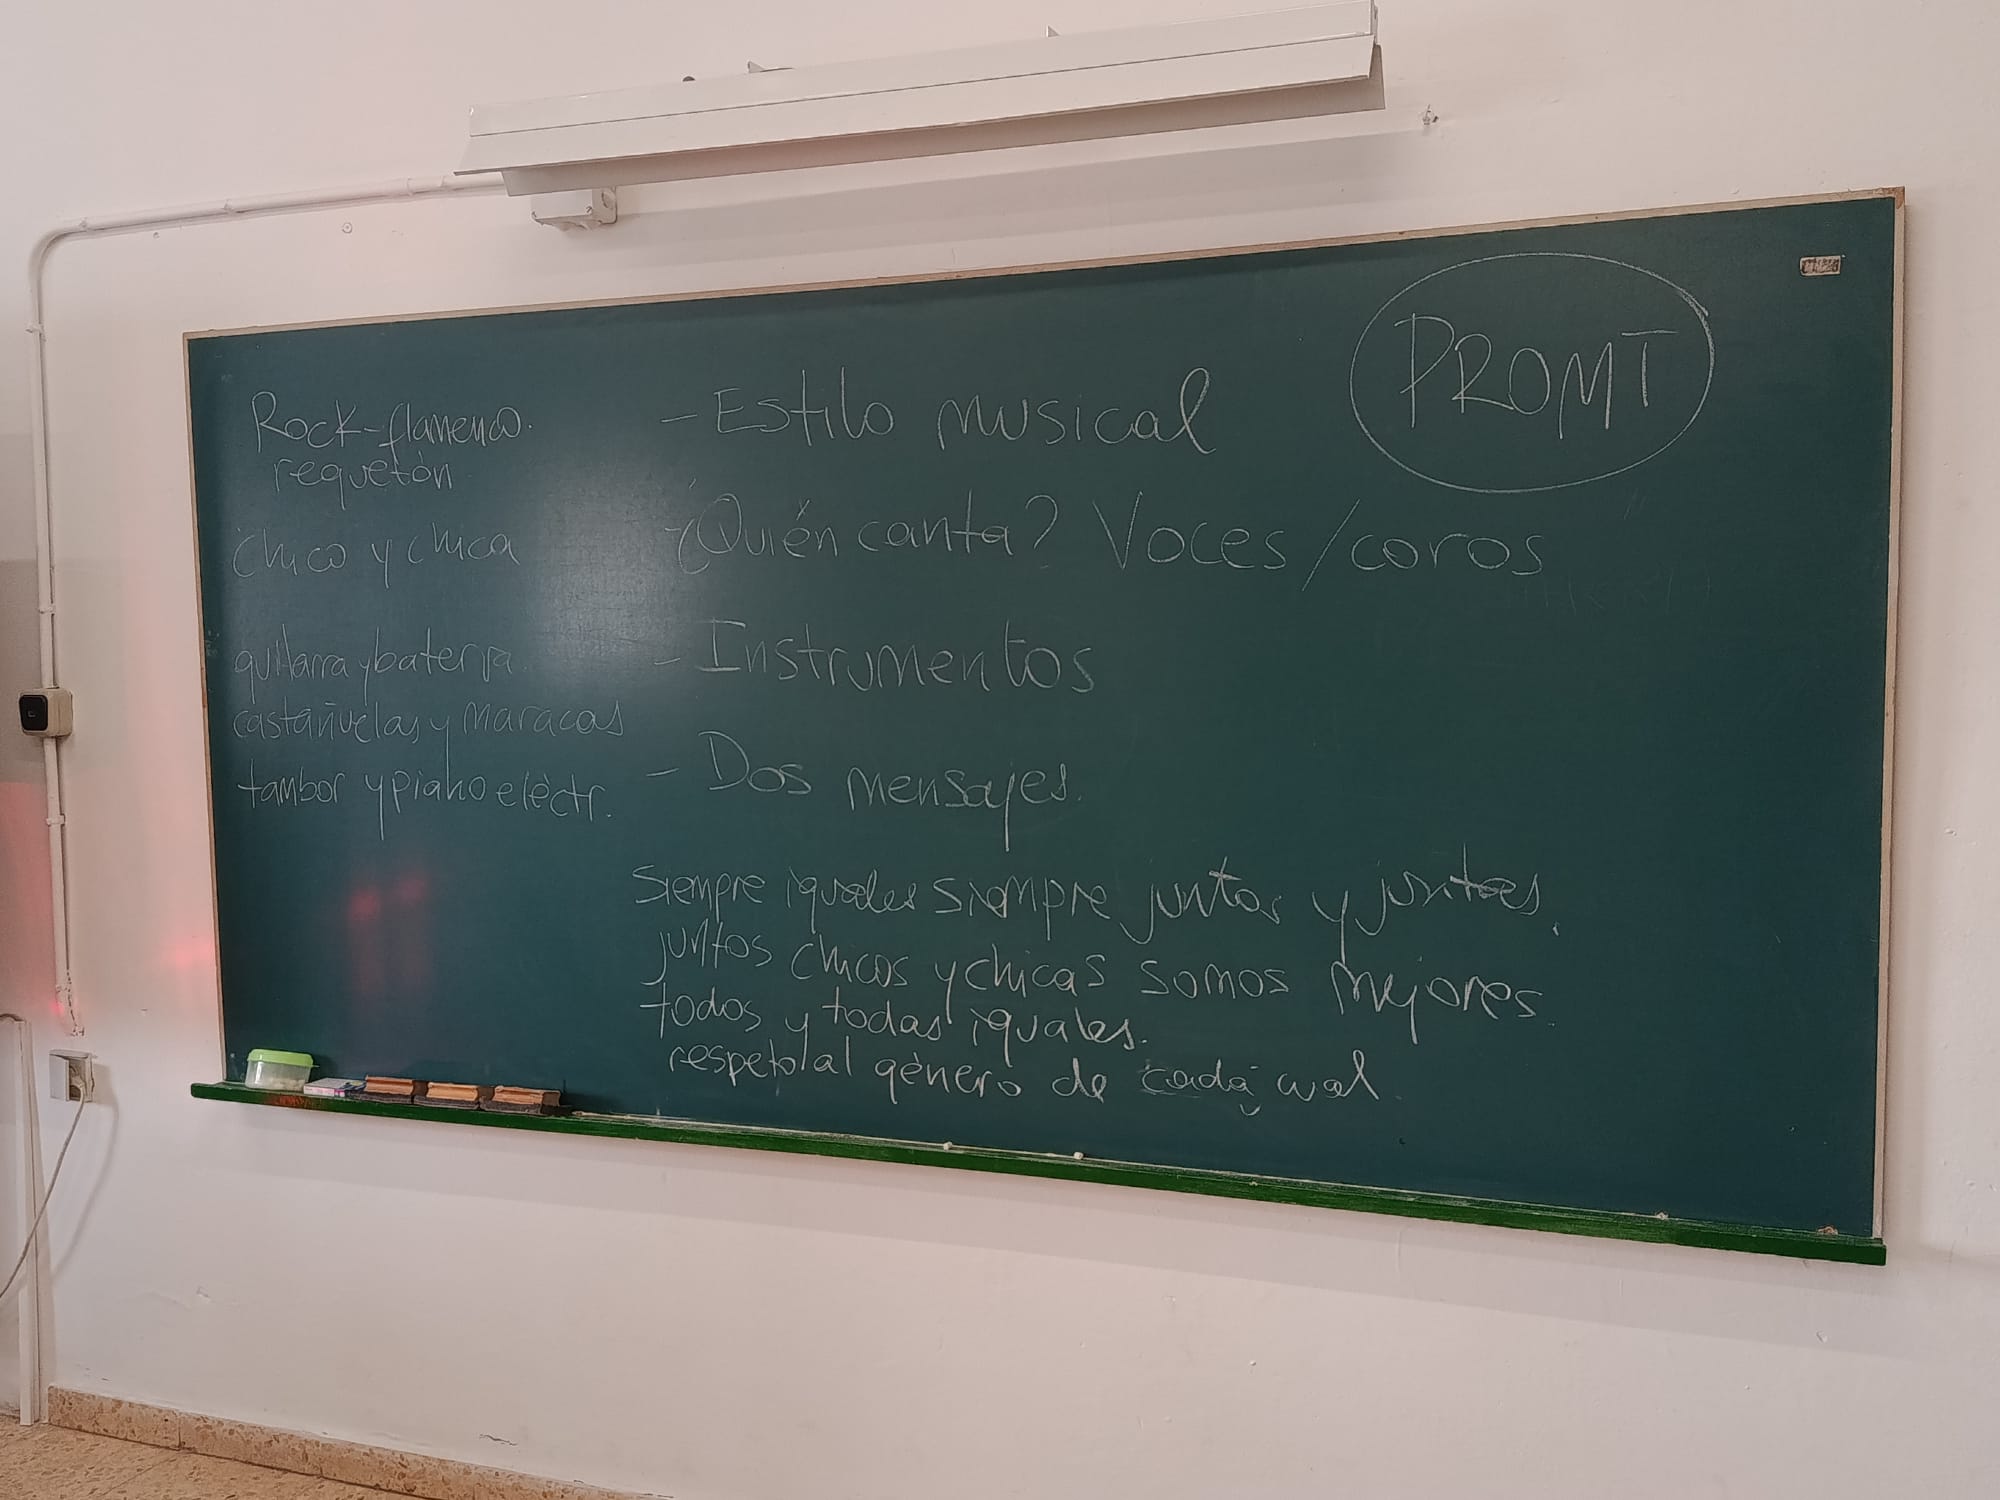 PROMT
Rock-flamenco.
reguetón
chico y chica
guitarra y batería.
castañuelas y maracas
tambor y piano eléctr.
- Estilo musical
¿Quién canta? Voces/coros
- Instrumentos
- Dos mensajes.
siempre iguales siempre juntos y juntas.
juntos chicos y chicas somos mejores.
todos y todas iguales.
respeto al género de cada cual.